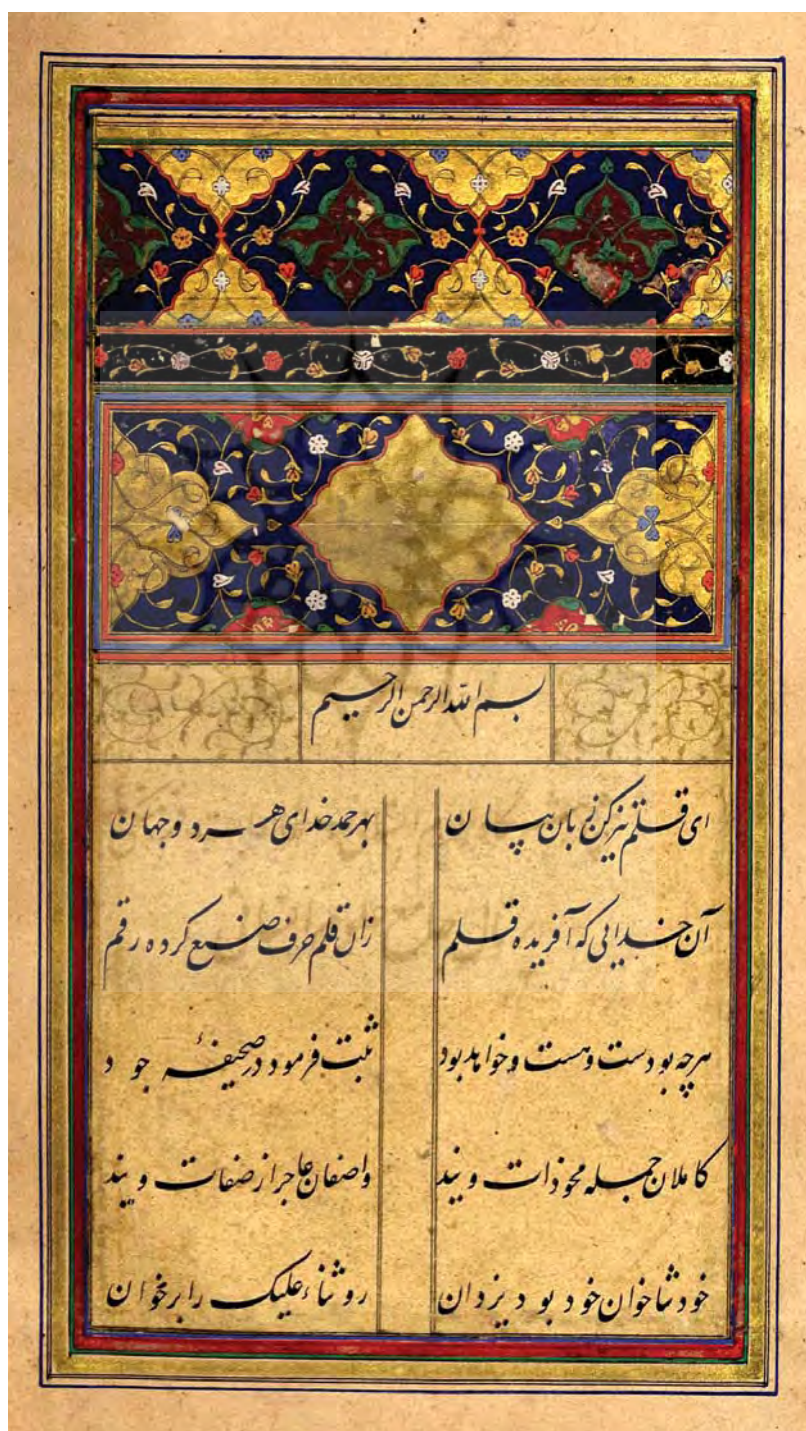 بسم الله الرحمن الرحیم
ای قلم تیز کن زبان بیان بهر حمد خدای هر دو جهان
آن خدایی که آفریده قلم زان قلم حرف صنع کرده رقم
هرچه بودست وهست وخواهد بود ثبت فرمود در صحیفهٔ جود
کاملان جمله محو ذات ویند واصفان عاجز از صفات ویند
خود ثناخوان خود بود یزدان رو ثناء علیک را برخوان